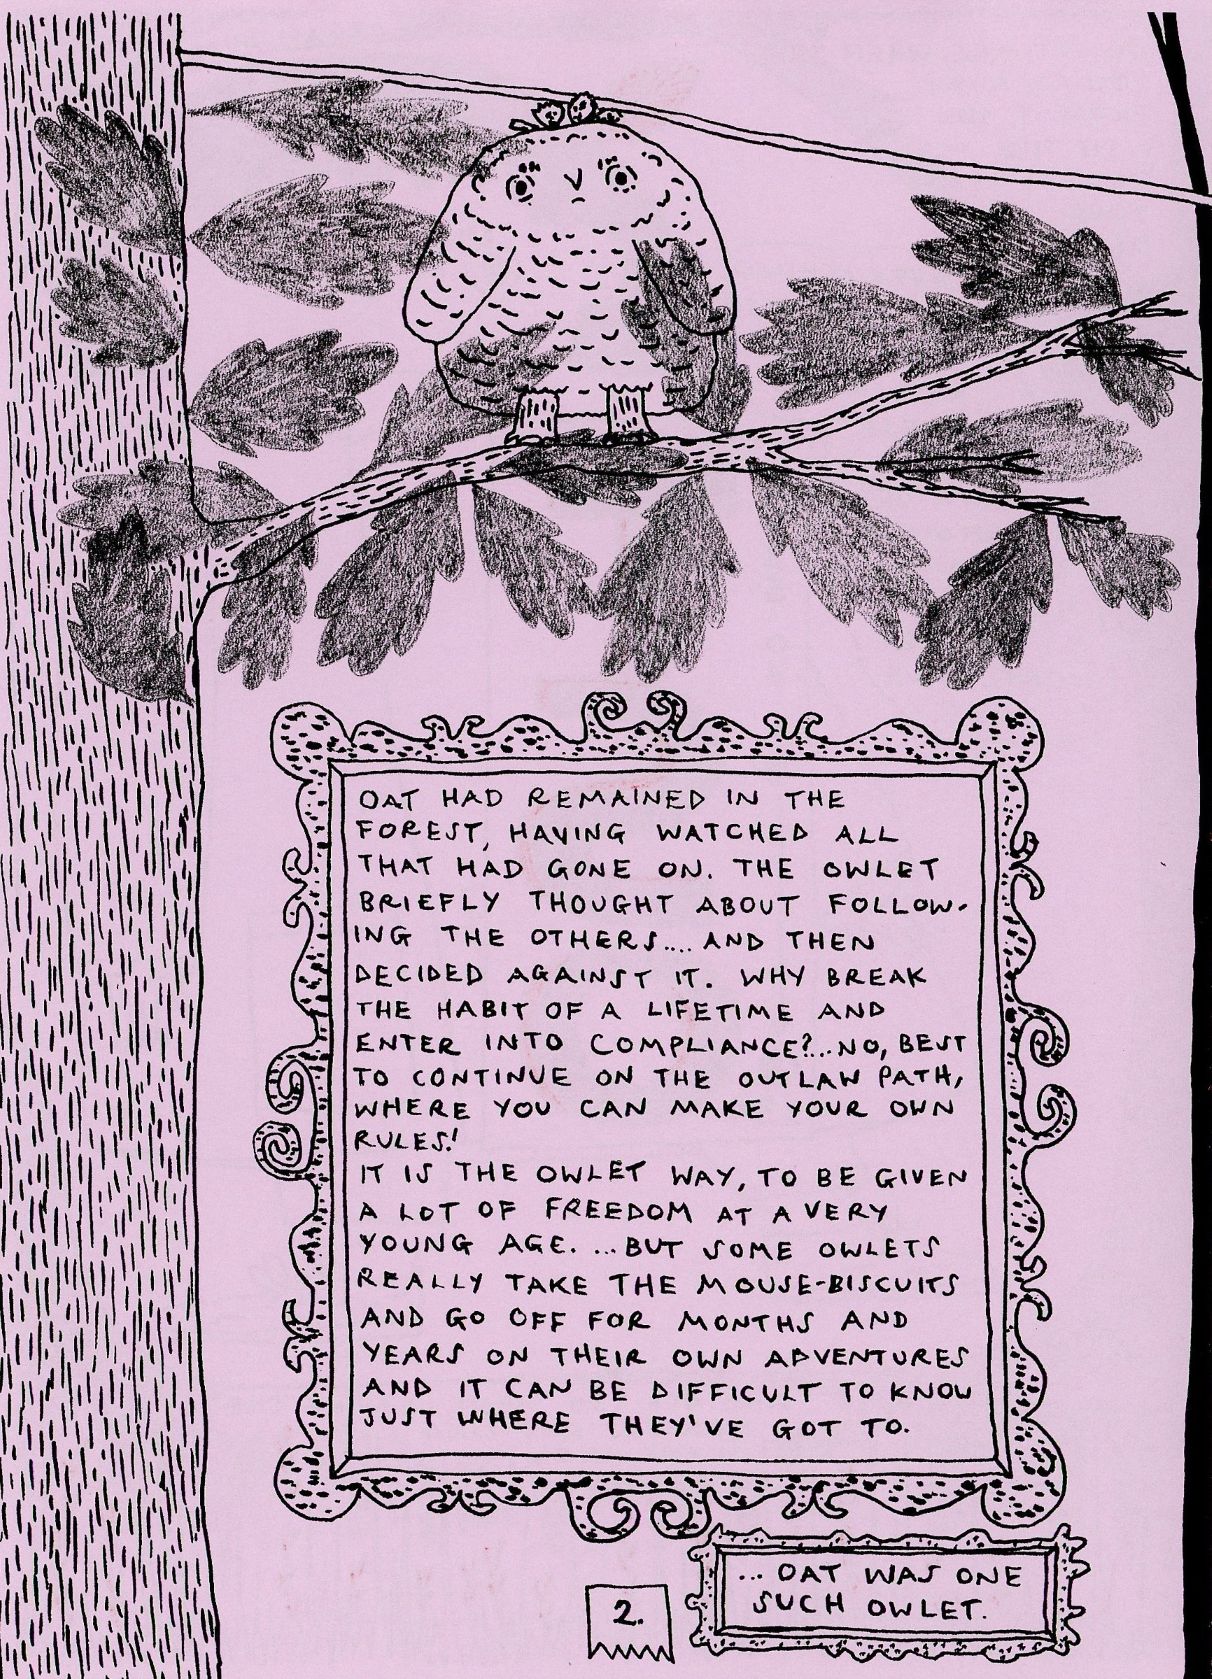 OAT HAD REMAINED IN THE
FOREST, HAVING WATCHED ALL
THAT HAD GONE ON. THE OWLET
BRIEFLY THOUGHT ABOUT FOLLOW-
ING THE OTHERS.... AND THEN
DECIDED AGAINST IT. WHY BREAK
THE HABIT OF A LIFETIME AND
ENTER INTO COMPLIANCE?... NO, BEST
TO CONTINUE ON THE OUTLAW PATH,
WHERE YOU CAN MAKE YOUR OWN
RULES!
IT IS THE OWLET WAY, TO BE GIVEN
A LOT OF FREEDOM AT A VERY
YOUNG AGE. ...BUT SOME OWLETS
REALLY TAKE THE MOUSE-BISCUITS
AND GO OFF FOR MONTHS AND
YEARS ON THEIR OWN ADVENTURES
AND IT CAN BE DIFFICULT TO KNOW
JUST WHERE THEY'VE GOT TO.
... OAT WAS ONE
SUCH OWLET.
2.